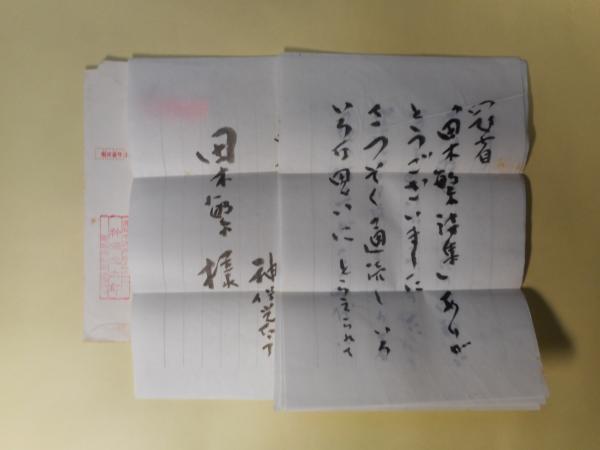 冠省
「田木繁詩集」ありが
とうございました
さっそく通読しいろ
いろな思いにとらえられて
田木繁様
神保光太郎